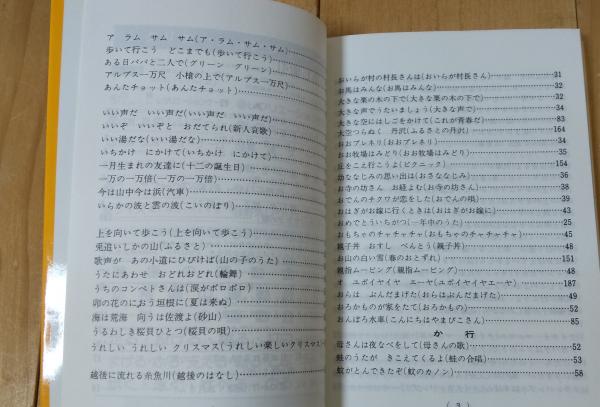 ア ラム サム サム(ア・ラム・サム・サム)
歩いて行こう どこまでも(歩いて行こう)
ある日パパと二人で(グリーン グリーン)
アルプス一万尺 小槍の上で(アルプス一万尺)
あんたチョット(あんたチョット)
いい声だ いい声だ(いい声だ いい声だ)
いいぞ いいぞと おだてられ(新人哀歌)
いい湯だな(いい湯だな)
いちかけ にかけて(いちかけ にかけて)
一月生まれの友達に(十二の誕生日)
一万の一万倍(一万の一万倍)
今は山中今は浜(汽車)
いらかの波と雲の波(こいのぼり)
上を向いて歩こう(上を向いて歩こう)
兎追いしかの山(ふるさと)
歌声が あの小道にひびけば(山の子のうた)
うたにあわせ おどれおどれ(輪舞)
うちのコンペトさんは(涙がポロポロ)
卯の花のにおう垣根に(夏は来ぬ)
海は荒海 向うは佐渡よ(砂山)
うるわしき桜貝ひとつ(桜貝の唄)
うれしい うれしい クリスマス(うれしい楽しいクリスマス
越後に流れる糸魚川(越後のはなし)
おいらが村の村長さんは(おいらが村の村長さん)……31
お馬はみんな(お馬はみんな)……32
大きな栗の木の下で(大きな栗の木の下で)……32
大きな声でうたいましょう(大きな声で)……34
大きな空にはしごをかけて(これが青春だ)……83
大空つらぬく 丹沢(ふるさとの丹沢)……164
おおブレネリ(おおブレネリ)……34
おお牧場はみどり(おお牧場はみどり)……35
丘をこえ行こうよ(ピクニック)……154
幼ななじみの思い出は(おさななじみ)……36
お寺の坊さん お経よむ(お寺の坊さん)……38
おでんのチクワが恋をした(おでんの唄)……39
おはぎがお嫁に行くときは(おはぎがお嫁に)……43
おめでとういちがつ(一年中のうた)……25
おもちゃのチャチャチャ(おもちゃのチャチャチャ)……45
親子丼 おすし べんとう(親子丼)……48
お山の白い雪(春のおとずれ)……151
親指ムービング(親指ムービング)……48
オ ユポイヤイヤ エーヤ(ユポイヤイヤエーヤ)……187
おらは ぶんだまげた(おらはぶんだまげた)……49
おろかものが家をたて(おろかもの)……52
おんぼろ水車(こんにちはやまびこさん)……85
か 行
母さんは夜なべをして(母さんの歌)……52
蛙のうたが きこえてくるよ(蛙の合唱)……53
蚊がとんできたぞ(蚊のカノン)……58
( 3 )